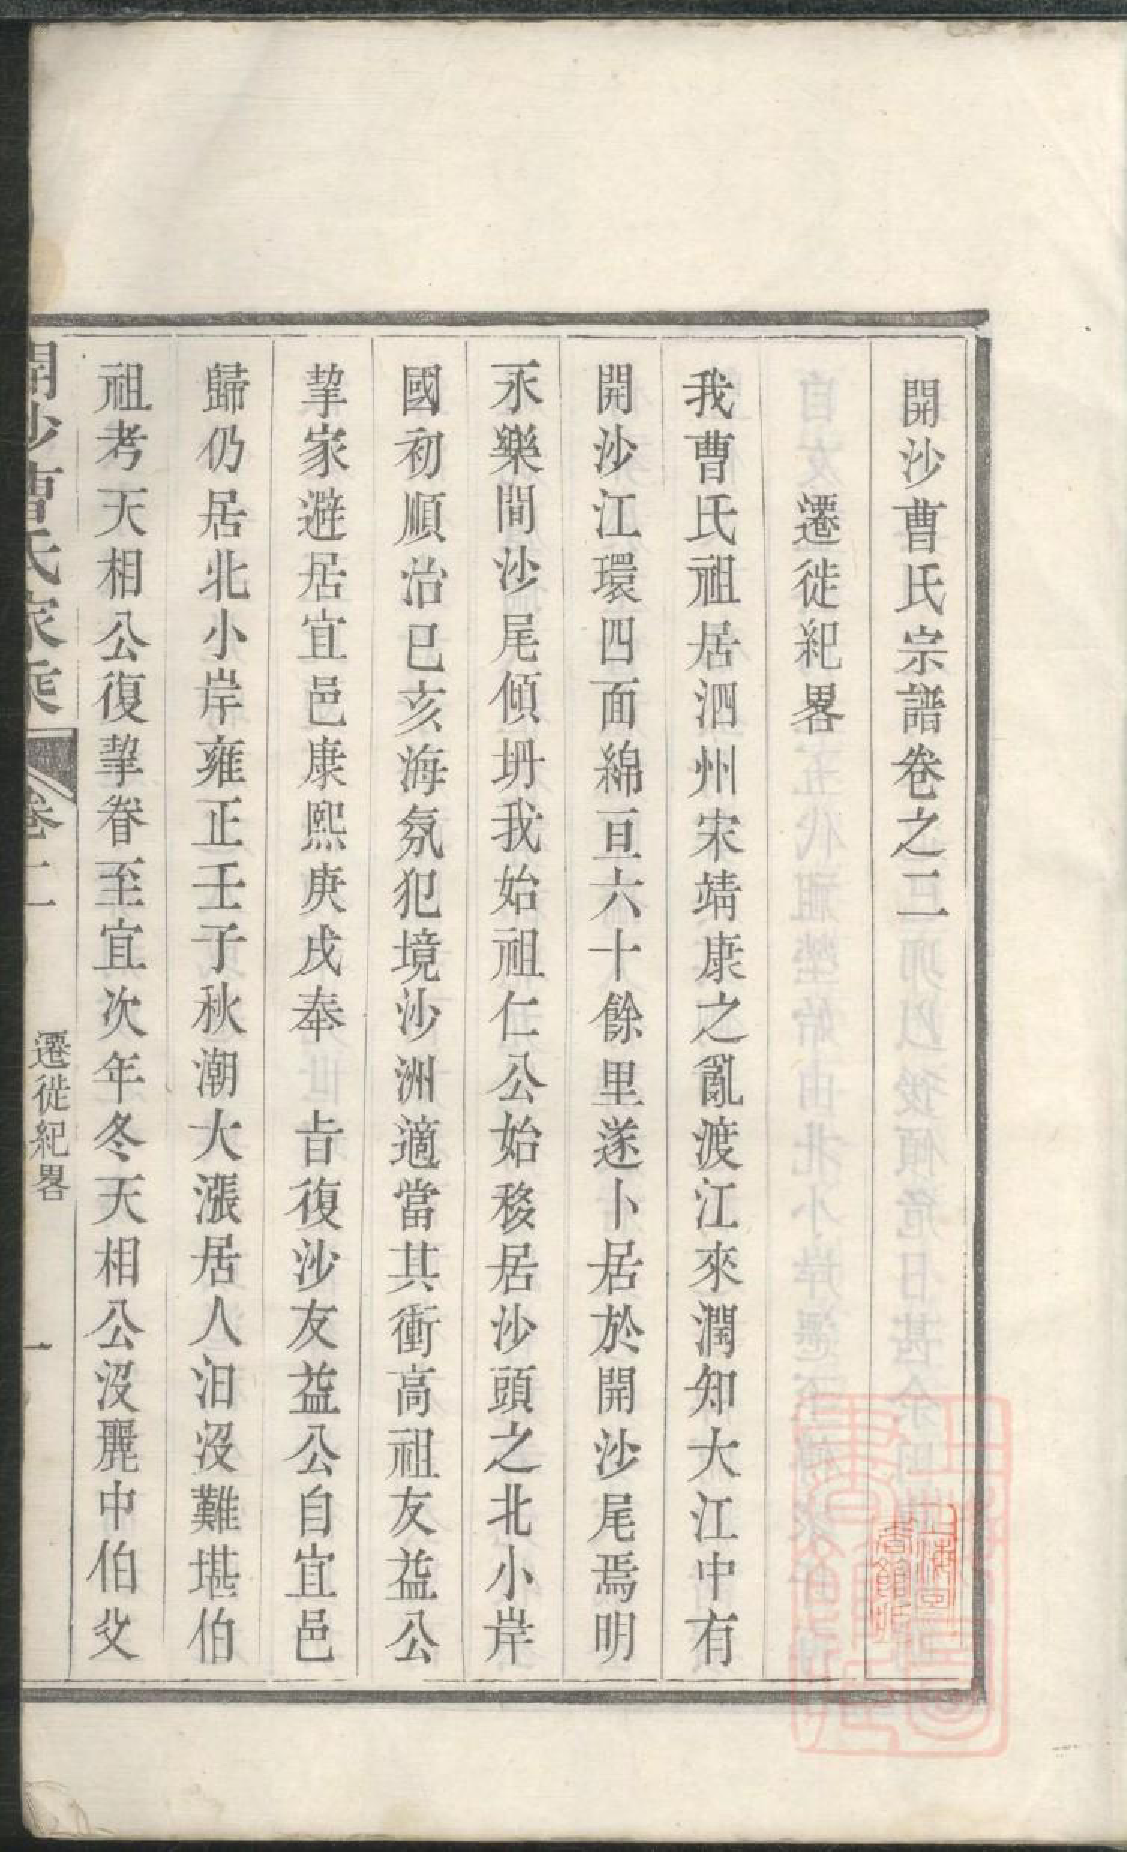 開沙曹氏宗譜卷之二
遷徙紀畧
我曹氏祖居泗州宋靖康之亂渡江來潤知大江中有
開沙江環四面綿亘六十餘里遂卜居於開沙尾焉明
永樂間沙尾傾坍我始祖仁公始移居沙頭之北小岸
國初順治已亥海氛犯境沙洲適當其衝高祖友益公
挈家避居宜邑康熙庚戌奉　旨復沙友益公自宜邑
歸仍居北小岸雍正壬子秋潮大漲居人汨沒難堪伯
祖考天相公復挈眷至宜次年冬天相公沒麗中伯父
開沙曹氏家乘
卷二
遷徙紀畧
一
上海圖書館藏